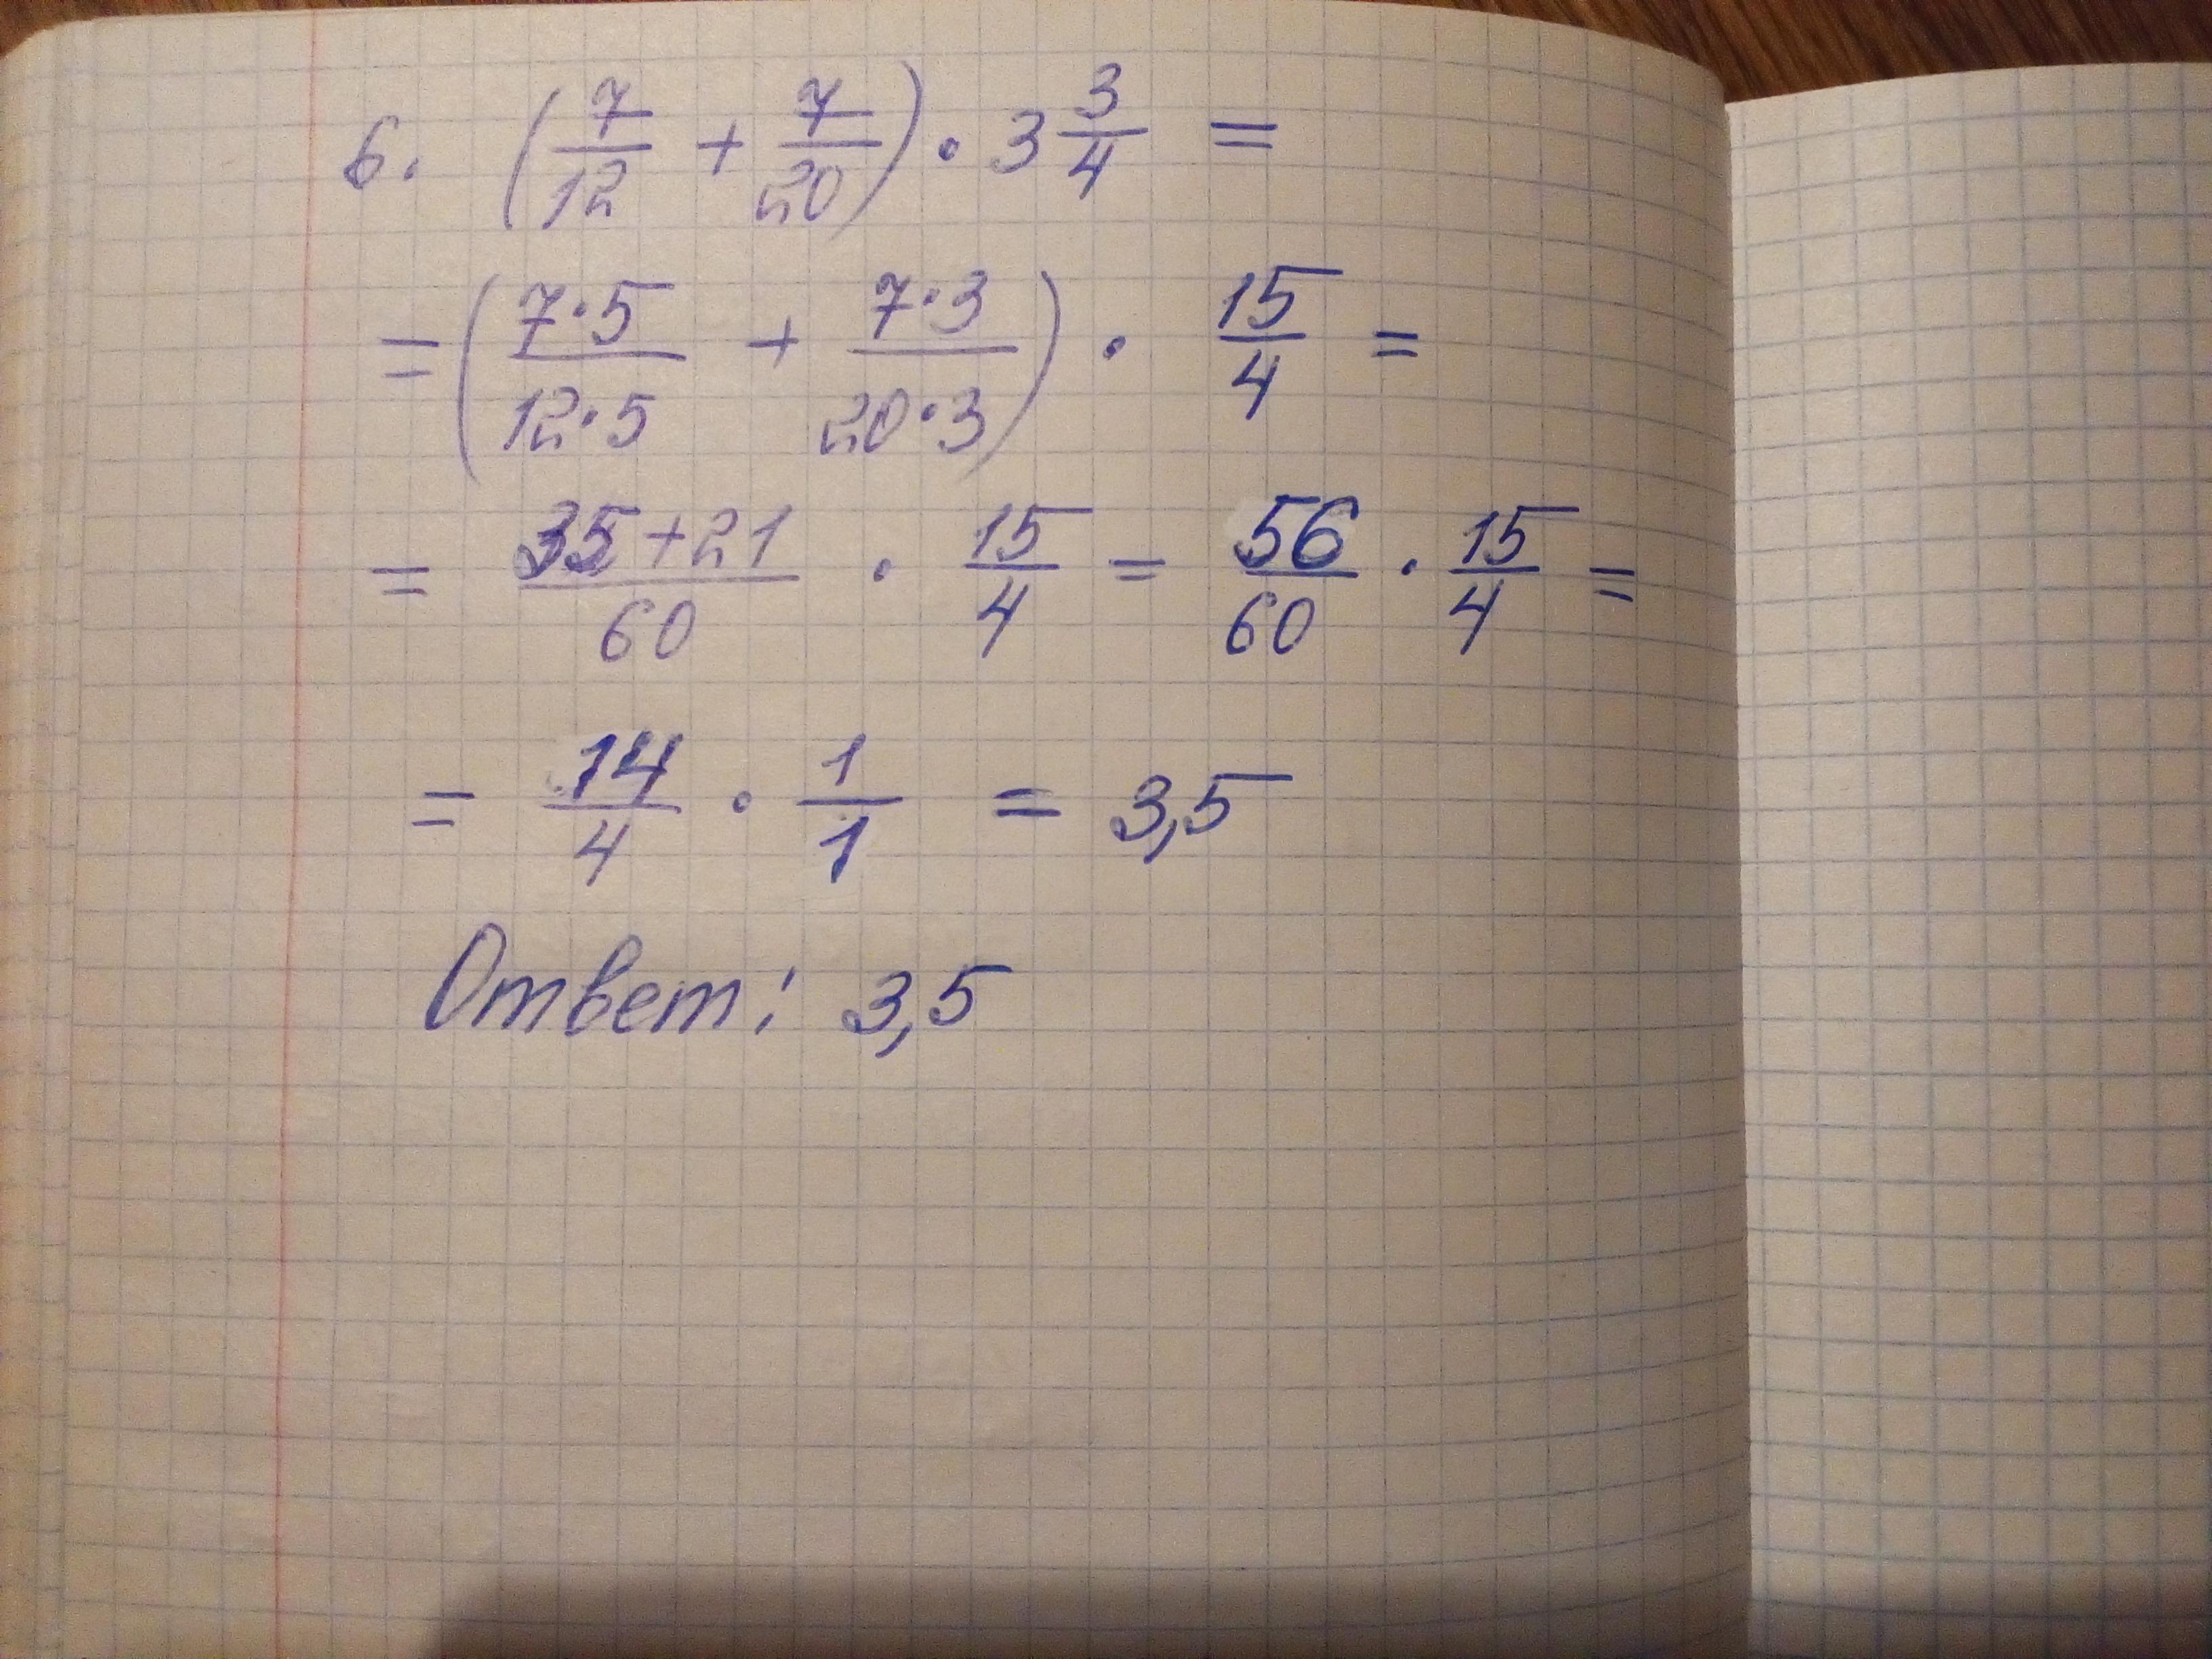 6. (7/12 + 7/20) · 3 3/4 =
= (7·5/12·5 + 7·3/20·3) · 15/4 =
= 35+21/60 · 15/4 = 56/60 · 15/4 =
= 14/4 · 1/1 = 3,5
Ответ: 3,5